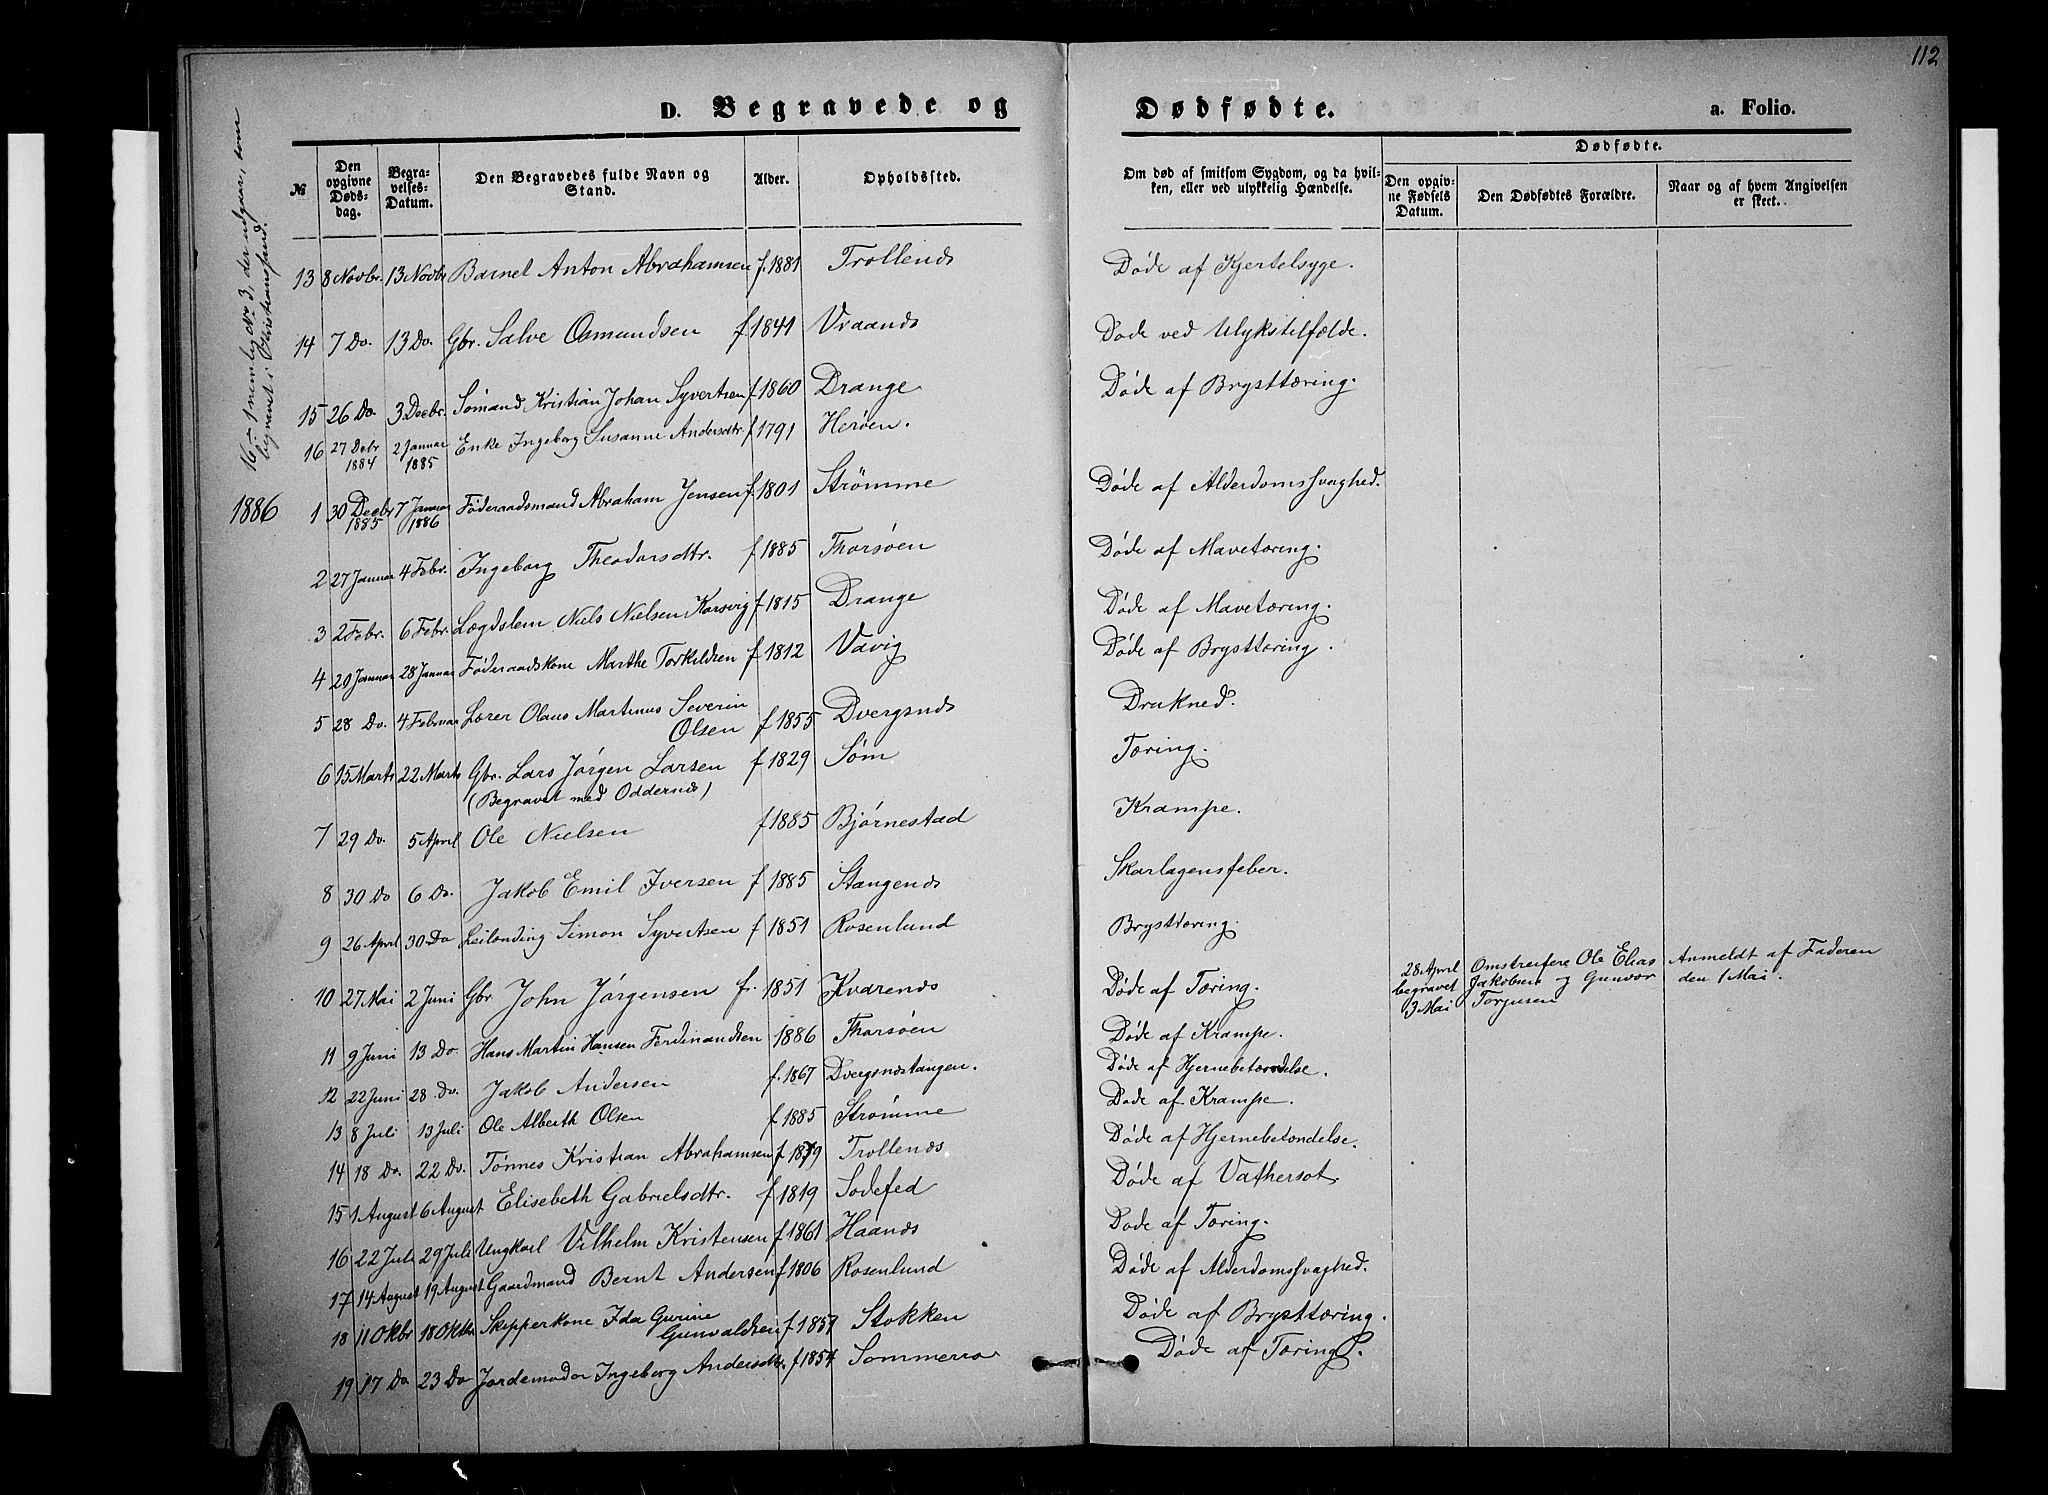 112
D. Begravede og Dødfødte. a. Folio.
16 ÷ 1 nemlig No 3, der udgaar, som
begravet i Christianssand.
№
Den opgivne Døds-dag.
Begra-velses-Datum.
Den Begravedes fulde Navn og Stand.
Alder.
Opholdssted.
Om død af smitsom Sygdom, og da hvil-ken, eller ved ulykkelig Hændelse.
Dødfødte.
Den opgiv-ne Fødsels Datum.
Den Dødfødtes Forældre.
Naar og af hvem Angivelsen er skeet.
13 8 Novbr. 13 Novbr Barnet Anton Abrahamsen f. 1881 Trollends Døde af Kjertelsyge.
14 7 Do. 13 Do. Gbr. Salve Osmundsen f 1841 Vraands Døde ved Ulykstilfælde.
15 26 Do. 3 Decbr. Sømand Kristian Johan Syvertsen f 1860 Drange Døde af Brysttæring.
16 27 Debr 1884 2 Januar 1885 Enke Ingeborg Susanne Andersdtr. f 1791 Herøen.
1886 1 30 Decbr 1885 7 Januar 1886 Føderaadsmand Abraham Jensen f. 1801 Strømme Døde af Alderdomssvaghed.
2 27 Januar 4 Febr. Ingeborg Theodorsdtr. f 1885 Thorsøen Døde af Mavetæring.
3 2 Febr. 6 Febr. Lægdslem Niels Nielsen Korsvig f 1815 Drange Døde af Mavetæring.
4 20 Januar 28 Januar Føderaadskone Marthe Torkildsen f 1812 Vavig Døde af Brysttæring.
5 28 Do. 4 Februar Lærer Olaus Martinus Severin
Olsen f 1855 Dvergsnds Druknet.
6 15 Marts 22 Marts Gbr. Lars Jørgen Larsen f 1829 Søm Tæring.
(Begravet med Oddernds)
7 29 Do. 5 April Ole Nielsen f 1885 Bjørnestad Krampe.
8 30 Do 6 Do. Jakob Emil Iversen f 1885 Stangends Skarlagensfeber.
9 26 April 30 Do Leilænding Simon Syvertsen f 1851 Rosenlund Brysttæring.
28 April begravet 3 Mai
Omstreifere Ole Elias Jakobsen og Gunvor Torjusen
Anmeldt af Faderen den 1 Mai.
10 27 Mai 2 Juni Gbr John Jørgensen f. 1851 Kvarends Døde af Tæring.
11 9 Juni 13 Do Hans Martin Hansen Ferdinandsen 1886 Thorsøen Døde af Krampe.
12 22 Juni 28 Do. Jakob Andersen f. 1867 Dvergsndstangen. Døde af Hjernebetændelse.
13 8 Juli 13 Juli Ole Alberth Olsen f 1885 Strømme Døde af Krampe.
14 18 Do. 22 Do. Tønnes Kristian Abrahamsen f 1879 Trollends Døde af Hjernebetændelse.
15 1 August 6 August Elisebeth Gabrielsdtr. f 1819 Sodefed Døde af Vathersot.
16 22 Juli 29 Juli Ungkarl Vilhelm Kristensen f 1861 Haands Døde af Tæring.
17 14 August 19 August Gaardmand Bernt Andersen f 1806 Rosenlund Døde af Alderdomssvaghed.
18 11 Okbr 18 Oktbr Skipperkone Ida Gurine
Gunvaldsen f 1857 Stokken Døde af Brysttæring.
19 17 Do 23 Do Jordemoder Ingeborg Andersdtr. f 1854 Sommerro Døde af Tæring.